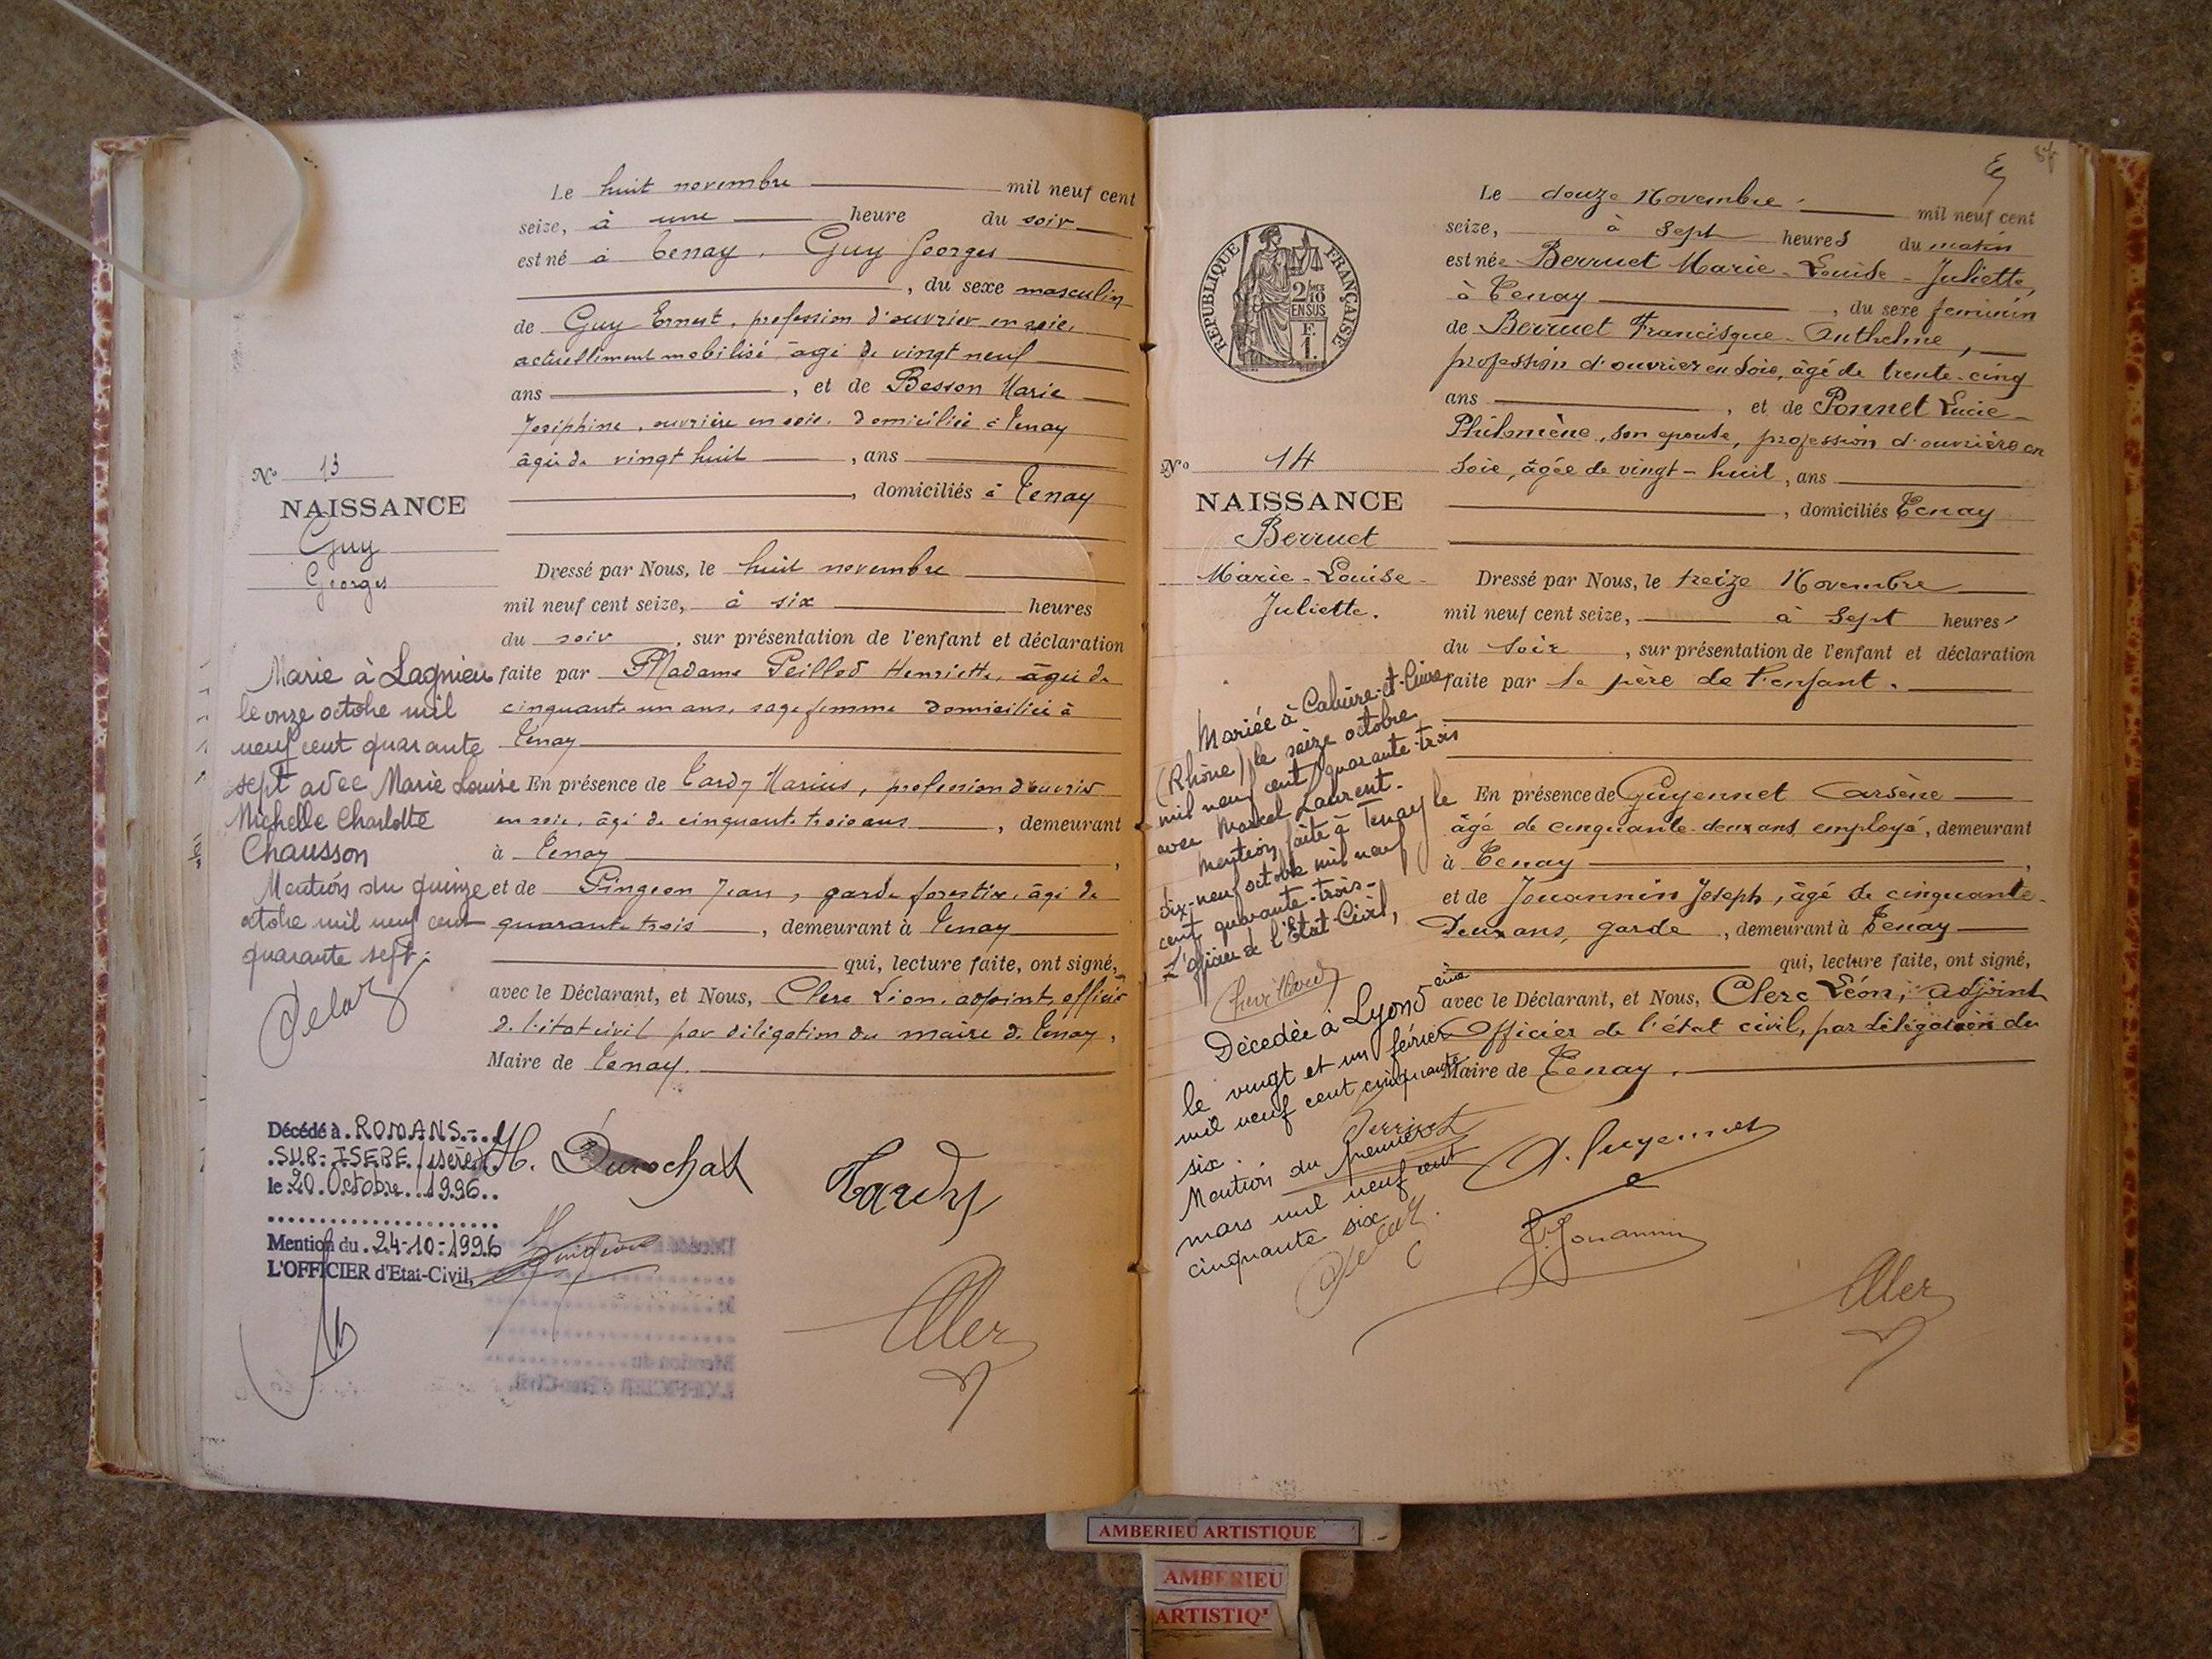 Le huit novembre mil neuf cent
seize, à une heure du soir
est né à Tenay, Guy Georges
, du sexe masculin
de Guy Ernest, profession d'ouvrier en soie,
actuellement mobilisé, âgé de vingt neuf
ans , et de Besson Marie
Joséphine, ouvrière en soie, domiciliée à Tenay
âgée de vingt huit , ans
, domiciliés à Tenay
No 13
NAISSANCE
Guy
Georges
Dressé par Nous, le huit novembre
mil neuf cent seize, à six heures
du soir , sur présentation de l'enfant et déclaration
faite par Madame Peillod Henriette, âgée de
cinquante un ans, sage femme domiciliée à
Tenay
En présence de Tardy Marius, profession d'ouvrier
en soie, âgé de cinquante trois ans , demeurant
à Tenay ,
et de Pingeon Jean, garde forestier, âgé de
quarante trois , demeurant à Tenay
qui, lecture faite, ont signé,
avec le Déclarant, et Nous, Clerc Léon, adjoint, officier
de l'état civil par délégation du maire de Tenay,
Maire de Tenay.
Marié à Lagnieu
le onze octobre mil
neuf cent quarante
sept avec Marie Louise
Michelle Charlotte
Chausson
Mention du quinze
octobre mil neuf cent
quarante sept.
Décédé à ROMANS-
SUR-ISERE (Isère)
le 20 Octobre 1996
Mention du 24-10-1996
L'OFFICIER d'Etat-Civil,
H. Durochat
Tardy
Pingeon
Clerc
Décédé
Mention du
L'OFFICIER d'Etat-Civil,
Le douze Novembre mil neuf cent
seize, à sept heures du matin
est née Berruet Marie-Louise-Juliette,
à Tenay , du sexe féminin
de Berruet Francisque-Anthelme,
profession d'ouvrier en soie, âgé de trente-cinq
ans , et de Ponnet Lucie
Philomène, son épouse, profession d'ouvrière en
soie, âgée de vingt-huit , ans
, domiciliés Tenay
REPUBLIQUE FRANÇAISE
2/10
EN SUS
F.
1.
No 14
NAISSANCE
Berruet
Marie-Louise-
Juliette.
Dressé par Nous, le treize Novembre
mil neuf cent seize, à sept heures
du soir , sur présentation de l'enfant et déclaration
faite par le père de l'enfant.
En présence de Guyennet Arsène
âgé de cinquante-deux ans, employé, demeurant
à Tenay ,
et de Jouannin Joseph, âgé de cinquante-
deux ans, garde , demeurant à Tenay
qui, lecture faite, ont signé,
avec le Déclarant, et Nous, Clerc Léon, adjoint
Officier de l'état civil, par délégation du
Maire de Tenay.
Mariée à Caluire-et-Cuire
(Rhône) le seize octobre
mil neuf cent quarante-trois
avec Marcel Laurent.
Mention faite à Tenay le
dix-neuf octobre mil neuf
cent quarante-trois-
L'officier de l'Etat-Civil,
Décédée à Lyon 5ème
le vingt et un février
mil neuf cent cinquante
six.
Mention du premier
mars mil neuf cent
cinquante six
Berruet
A. Guyennet
J. Jouannin
Clerc
AMBERIEU ARTISTIQUE
AMBERIEU
ARTISTIQ'